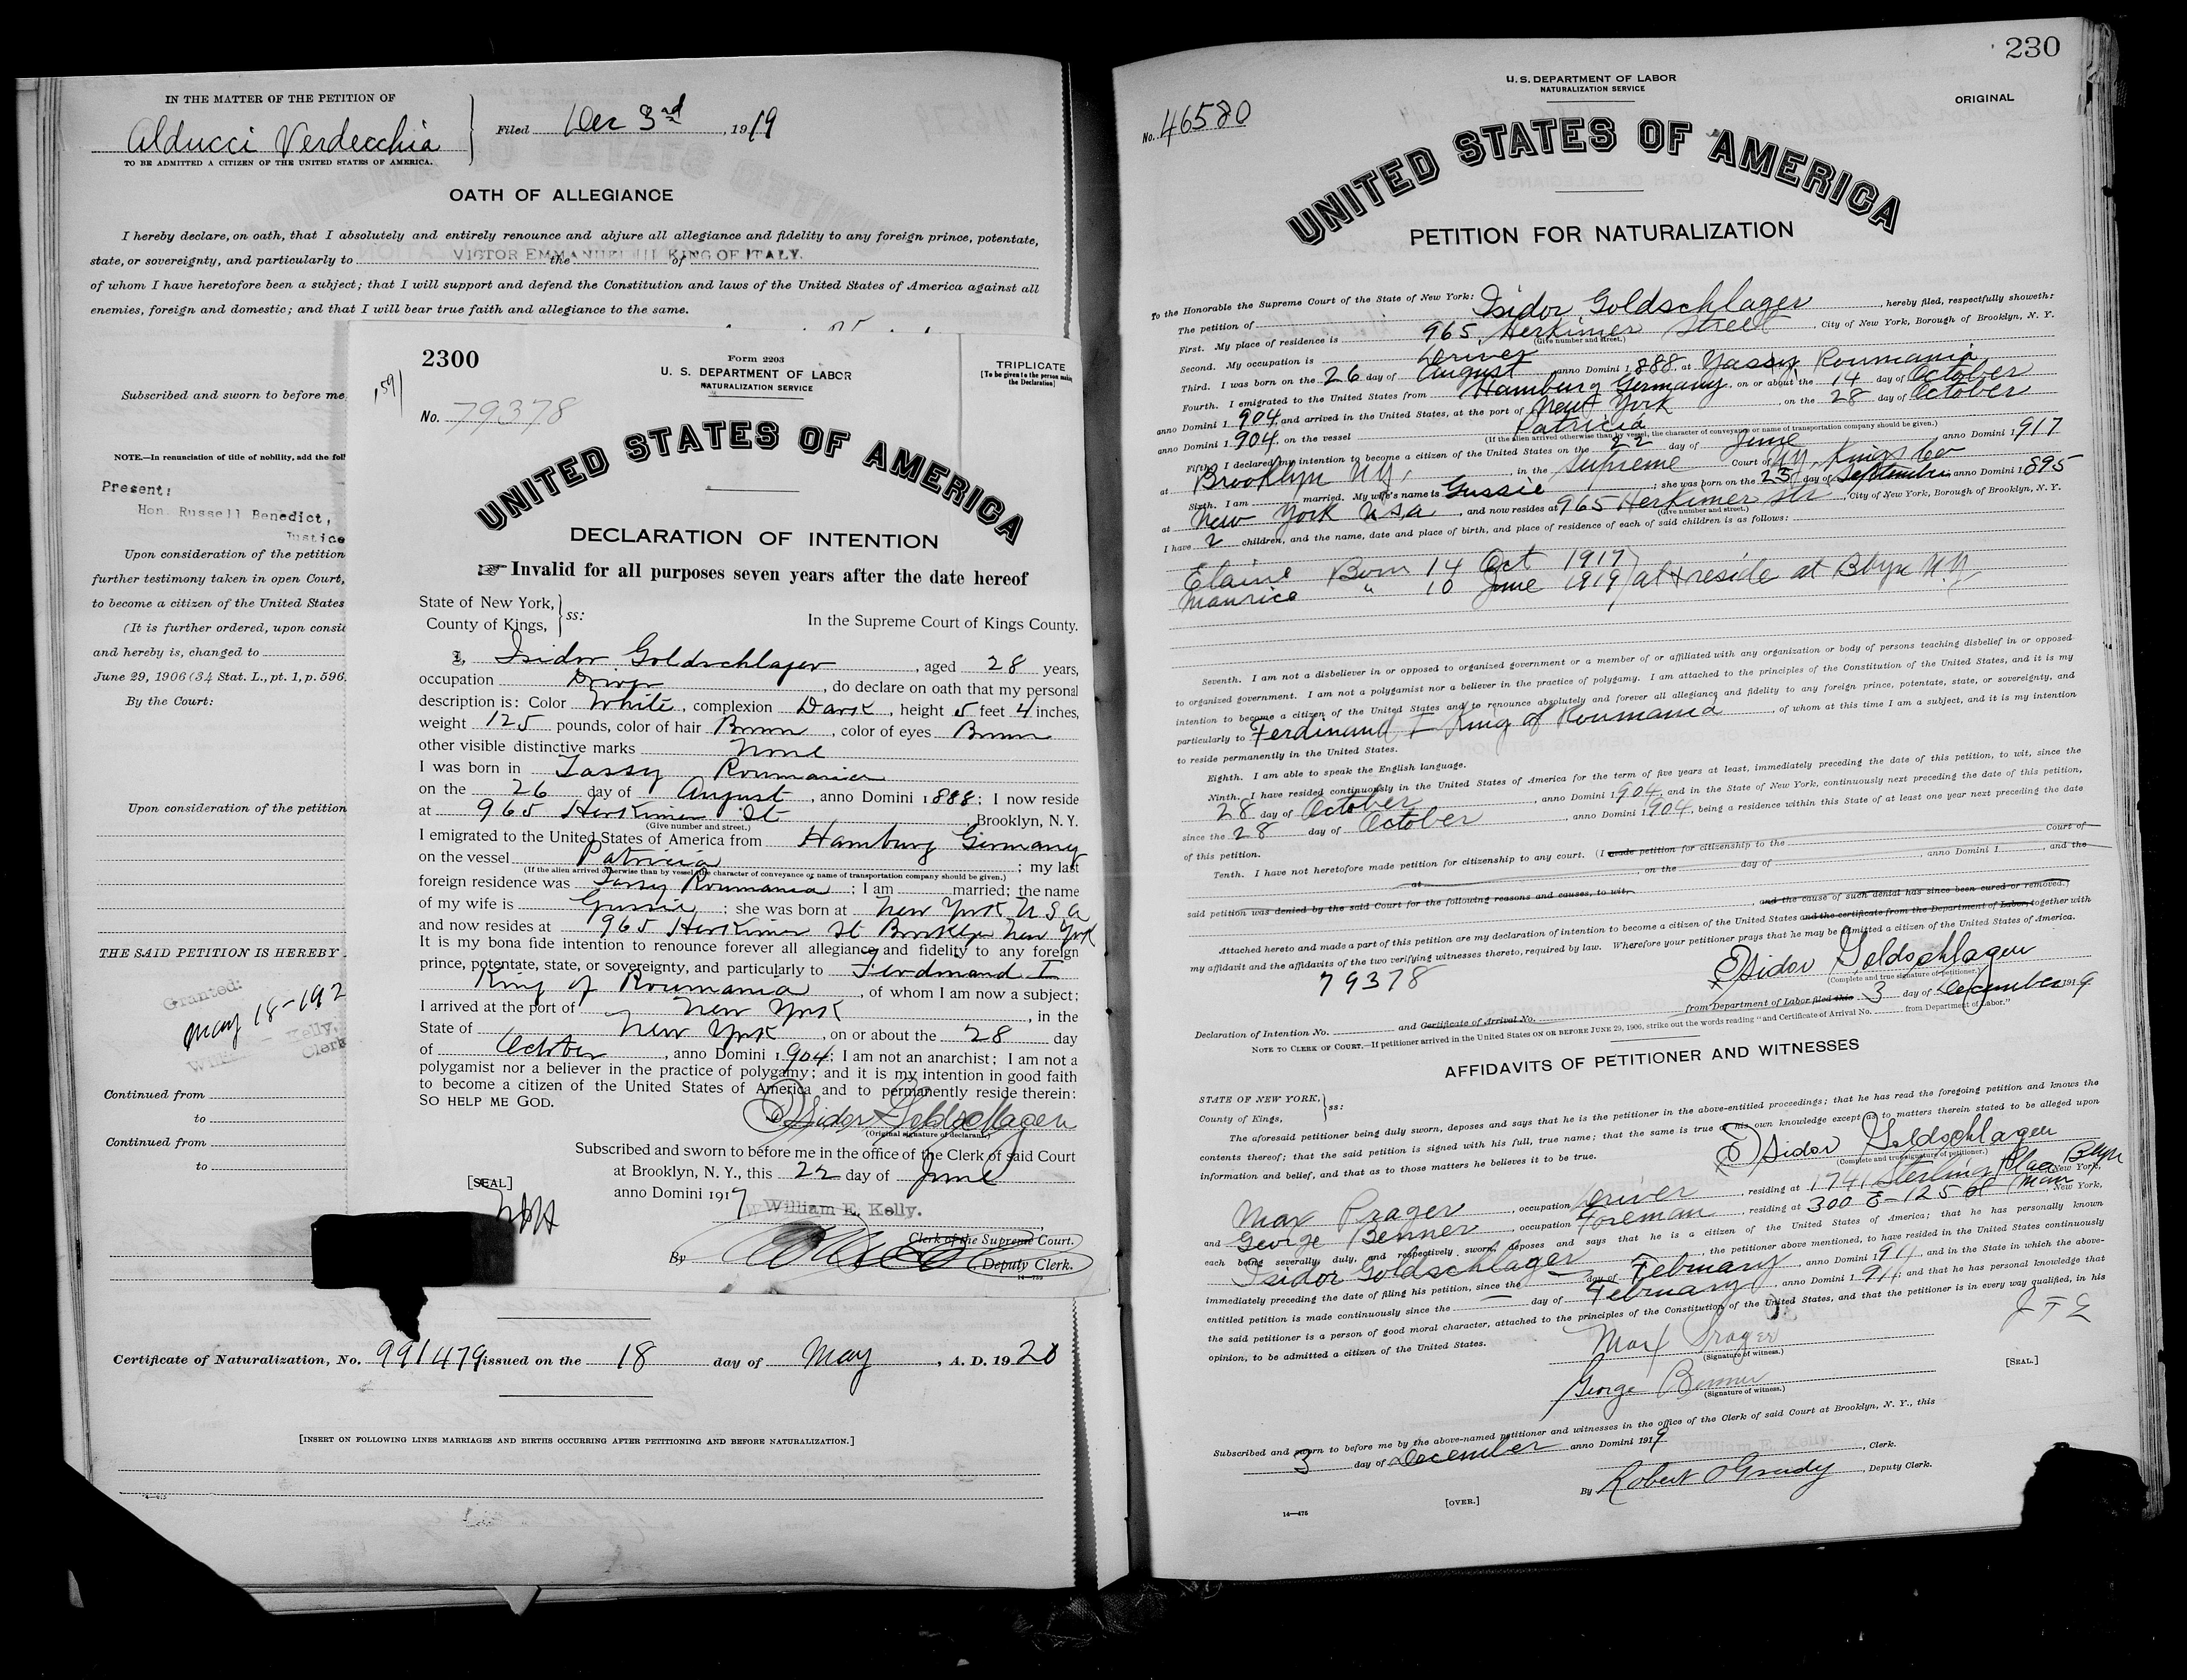 IN THE MATTER OF THE PETITION OF
Alducci Verdecchia
TO BE ADMITTED A CITIZEN OF THE UNITED STATES OF AMERICA.
Filed Dec 3rd, 1919
OATH OF ALLEGIANCE
I hereby declare, on oath, that I absolutely and entirely renounce and abjure all allegiance and fidelity to any foreign prince, potentate,
state, or sovereignty, and particularly to VICTOR EMMANUEL III KING OF ITALY. the of
of whom I have heretofore been a subject; that I will support and defend the Constitution and laws of the United States of America against all
enemies, foreign and domestic; and that I will bear true faith and allegiance to the same.
Subscribed and sworn to before me
NOTE.—In renunciation of title of nobility, add the fol
Present:
Hon. Russell Benedict,
Justice
Upon consideration of the petition
further testimony taken in open Court,
to become a citizen of the United States
(It is further ordered, upon consid
and hereby is, changed to
June 29, 1906 (34 Stat. L., pt. 1, p. 596.
By the Court:
Upon consideration of the petition
THE SAID PETITION IS HEREBY
Granted:
May 18-192
Kelly,
Clerk
Continued from
to
Continued from
to
Certificate of Naturalization, No. 991479 issued on the 18 day of May, A. D. 1920
[INSERT ON FOLLOWING LINES MARRIAGES AND BIRTHS OCCURRING AFTER PETITIONING AND BEFORE NATURALIZATION.]
1591
2300
Form 2203
U. S. DEPARTMENT OF LABOR
NATURALIZATION SERVICE
TRIPLICATE
[To be given to the person making
the Declaration]
No. 79378
UNITED STATES OF AMERICA
DECLARATION OF INTENTION
☞ Invalid for all purposes seven years after the date hereof
State of New York,
County of Kings, } ss:
In the Supreme Court of Kings County.
I, Isidor Goldschlager, aged 28 years,
occupation Driver, do declare on oath that my personal
description is: Color White, complexion Dark, height 5 feet 4 inches,
weight 125 pounds, color of hair Brown, color of eyes Brown
other visible distinctive marks None
I was born in Jassy Roumania
on the 26 day of August, anno Domini 1888; I now reside
at 965 Herkimer St, Brooklyn, N. Y.
(Give number and street.)
I emigrated to the United States of America from Hamburg Germany
on the vessel Patricia; my last
(If the alien arrived otherwise than by vessel, the character of conveyance or name of transportation company should be given.)
foreign residence was Jassy Roumania; I am married; the name
of my wife is Gussie; she was born at New York U S A
and now resides at 965 Herkimer St Brooklyn New York
It is my bona fide intention to renounce forever all allegiance and fidelity to any foreign
prince, potentate, state, or sovereignty, and particularly to Ferdinand I
King of Roumania, of whom I am now a subject;
I arrived at the port of New York, in the
State of New York, on or about the 28 day
of October, anno Domini 1904; I am not an anarchist; I am not a
polygamist nor a believer in the practice of polygamy; and it is my intention in good faith
to become a citizen of the United States of America and to permanently reside therein:
SO HELP ME GOD.
Isidor Goldschlager
(Original signature of declarant.)
Subscribed and sworn to before me in the office of the Clerk of said Court
at Brooklyn, N. Y., this 22 day of June
anno Domini 1917
[SEAL]
William E. Kelly.
Clerk of the Supreme Court.
By Deputy Clerk.
14—759
230
U. S. DEPARTMENT OF LABOR
NATURALIZATION SERVICE
ORIGINAL
No. 46580
UNITED STATES OF AMERICA
PETITION FOR NATURALIZATION
To the Honorable the Supreme Court of the State of New York:
The petition of Isidor Goldschlager, hereby filed, respectfully showeth:
First. My place of residence is 965 Herkimer Street, City of New York, Borough of Brooklyn, N. Y.
(Give number and street.)
Second. My occupation is Driver
Third. I was born on the 26 day of August anno Domini 1888, at Yassy Roumania
Fourth. I emigrated to the United States from Hamburg Germany, on or about the 14 day of October
anno Domini 1904, and arrived in the United States, at the port of New York, on the 28 day of October
anno Domini 1904, on the vessel Patricia
(If the alien arrived otherwise than by vessel, the character of conveyance or name of transportation company should be given.)
Fifth. I declared my intention to become a citizen of the United States on the 22 day of June anno Domini 1917
at Brooklyn N.Y., in the Supreme Court of N.Y. Kings Co
Sixth. I am married. My wife's name is Gussie; she was born on the 25 day of September anno Domini 1895
at New York U S A, and now resides at 965 Herkimer Str, City of New York, Borough of Brooklyn, N. Y.
(Give number and street.)
I have 2 children, and the name, date and place of birth, and place of residence of each of said children is as follows:
Elaine Born 14 Oct 1917
Maurice " 10 June 1919 } at & reside at Bklyn N.Y.
Seventh. I am not a disbeliever in or opposed to organized government or a member of or affiliated with any organization or body of persons teaching disbelief in or opposed
to organized government. I am not a polygamist nor a believer in the practice of polygamy. I am attached to the principles of the Constitution of the United States, and it is my
intention to become a citizen of the United States and to renounce absolutely and forever all allegiance and fidelity to any foreign prince, potentate, state, or sovereignty, and
particularly to Ferdinand I King of Roumania, of whom at this time I am a subject, and it is my intention
to reside permanently in the United States.
Eighth. I am able to speak the English language.
Ninth. I have resided continuously in the United States of America for the term of five years at least, immediately preceding the date of this petition, to wit, since the
28 day of October, anno Domini 1904, and in the State of New York, continuously next preceding the date of this petition,
since the 28 day of October, anno Domini 1904, being a residence within this State of at least one year next preceding the date
of this petition.
Tenth. I have not heretofore made petition for citizenship to any court. (I made petition for citizenship to the Court of
at, on the day of, anno Domini 1, and the
said petition was denied by the said Court for the following reasons and causes, to wit, and the cause of such denial has since been cured or removed.)
Attached hereto and made a part of this petition are my declaration of intention to become a citizen of the United States and the certificate from the Department of Labor, together with
my affidavit and the affidavits of the two verifying witnesses thereto, required by law. Wherefore your petitioner prays that he may be admitted a citizen of the United States of America.
Isidor Goldschlager
(Complete and true signature of petitioner.)
79378
Declaration of Intention No. and Certificate of Arrival No. from Department of Labor filed this 3 day of December 1919
NOTE TO CLERK OF COURT.—If petitioner arrived in the United States ON OR BEFORE JUNE 29, 1906, strike out the words reading "and Certificate of Arrival No. from Department of Labor."
AFFIDAVITS OF PETITIONER AND WITNESSES
STATE OF NEW YORK,
County of Kings, } ss:
The aforesaid petitioner being duly sworn, deposes and says that he is the petitioner in the above-entitled proceedings; that he has read the foregoing petition and knows the
contents thereof; that the said petition is signed with his full, true name; that the same is true of his own knowledge except as to matters therein stated to be alleged upon
information and belief, and that as to those matters he believes it to be true.
Isidor Goldschlager
(Complete and true signature of petitioner.)
Max Prager, occupation Driver, residing at 1741 Sterling Place Bklyn New York,
and George Benner, occupation Foreman, residing at 300 E-125 st Man New York,
each being severally, duly, and respectively sworn, deposes and says that he is a citizen of the United States of America; that he has personally known
Isidor Goldschlager, the petitioner above mentioned, to have resided in the United States continuously
immediately preceding the date of filing his petition, since the — day of February, anno Domini 1911, and in the State in which the above-
entitled petition is made continuously since the — day of February, anno Domini 1911; and that he has personal knowledge that
the said petitioner is a person of good moral character, attached to the principles of the Constitution of the United States, and that the petitioner is in every way qualified, in his
opinion, to be admitted a citizen of the United States.
Max Prager
(Signature of witness.)
George Benner
(Signature of witness.)
[SEAL.]
Subscribed and sworn to before me by the above-named petitioner and witnesses in the office of the Clerk of said Court at Brooklyn, N. Y., this
3 day of December anno Domini 1919
William E. Kelly., Clerk.
By Robert O'Grady, Deputy Clerk.
14—475
[OVER.]